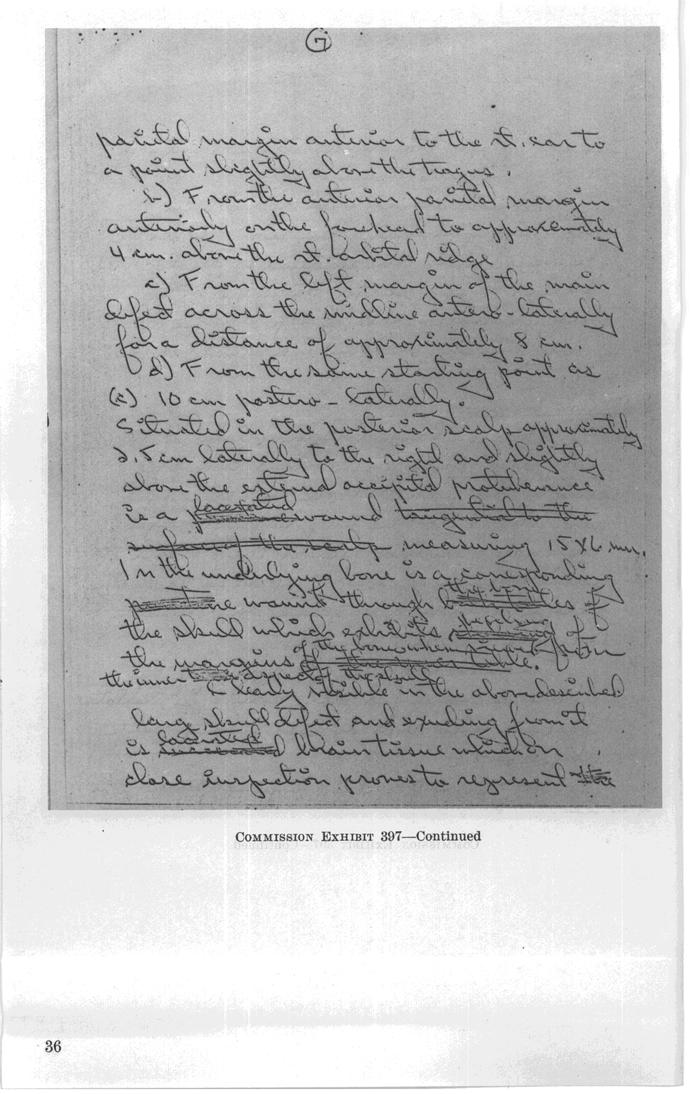 7
parietal margin anterior to the rt. ear to
a point slightly above the tragus.
b) From the anterior parietal margin
anteriorly on the forehead to approximately
4 cm. above the rt. orbital ridge
c) From the left margin of the main
defect across the midline antero-laterally
for a distance of approximately 8 cm.
d) From the same starting point as
(c) 10 cm postero-laterally.
Situated in the posterior scalp approximately
2.5 cm laterally to the right and slightly
above the external occipital protuberance
lacerated
is a wound tangential to the
surface of the scalp measuring 15x6 mm.
In the underlying bone is a corresponding
wound through
the skull which exhibits of
of the bone when viewed from
the margins of the inner table.
the inner aspect of the skull
Clearly visible in the above described
large skull defect and exuding from it
lacerated
is brain tissue which on
close inspection proves to represent the
COMMISSION EXHIBIT 397—Continued
36